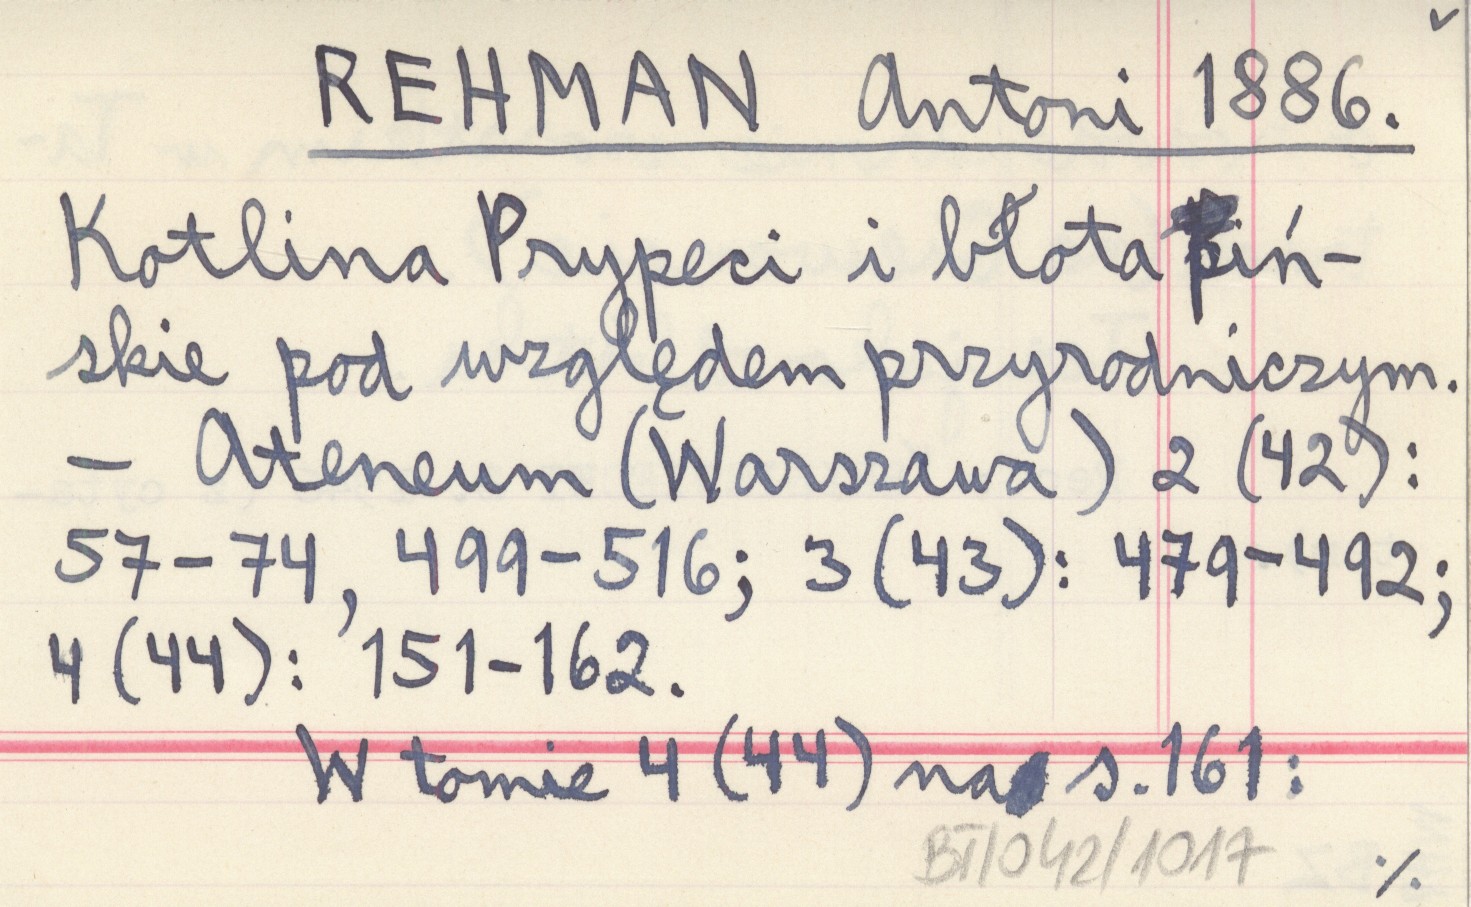 REHMAN Antoni 1886.
Kotlina Prypeci i błota piń-
skie pod względem przyrodniczym.
— Ateneum (Warszawa) 2 (42):
57-74, 499-516; 3 (43): 479-492;
4 (44): 151-162.
W tomie 4 (44) na s. 161:
BT/042/1017
./.